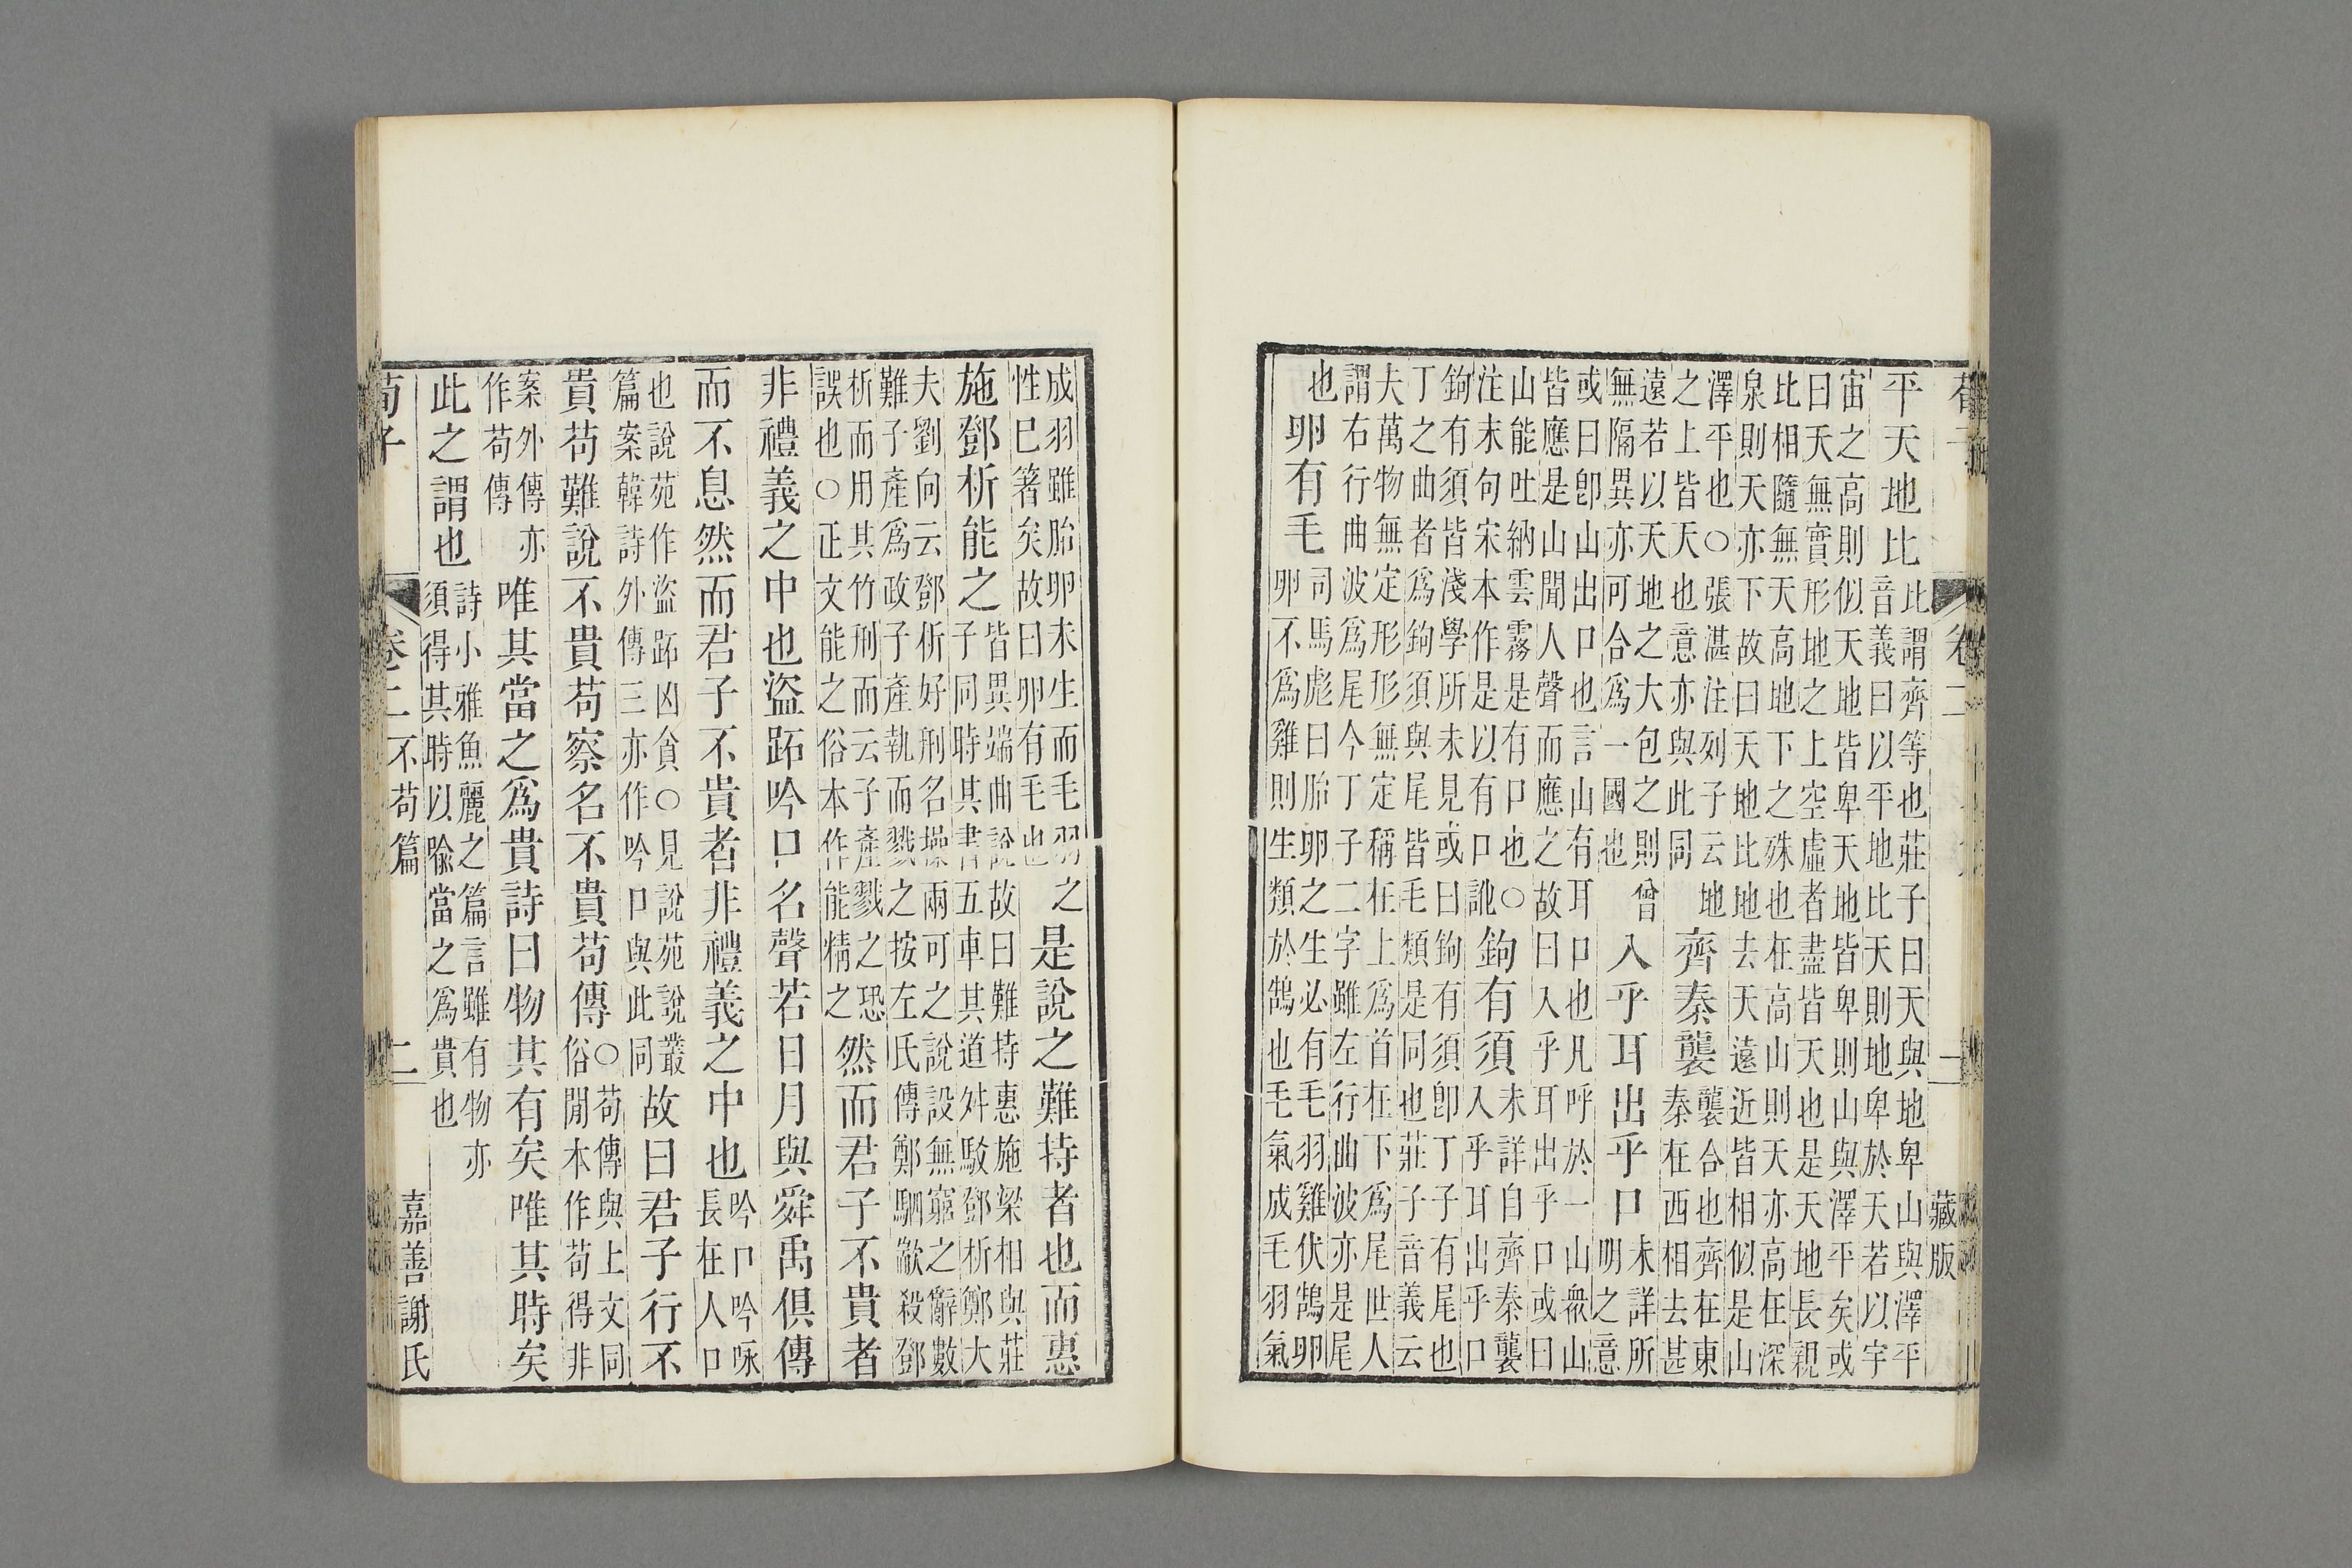 藏版
平天地比
此謂齊等也莊子曰天與地卑山與澤平
音義曰以平地比天則地卑於天若以宇
宙之高則似天地皆卑天地皆卑則山與澤平矣或
曰天無實形地之上空虛者盡皆天也是天地長親
比相隨無天高地下之殊也在高山則天亦高在深
泉則天亦下故曰天地比地去天遠近皆相似是山
澤平也○張湛注列子云地
之上皆天也意亦與此同
齊秦襲
襲合也齊在東
秦在西相去甚
遠若以天地之大包之則曾
無隔異亦可合爲一國也
入乎耳出乎口
未詳所
明之意
或曰卽山出口也言山有耳口也凡呼於一山衆山
皆應是山聞人聲而應之故曰入乎耳出乎口或曰
山能吐納雲霧是有口也○
注末句宋本作是以有口訛
鉤有須
未詳自齊秦襲
入乎耳出乎口
鉤有須皆淺學所未見或曰鉤有須卽丁子有尾也
丁之曲者爲鉤須與尾皆毛類是同也莊子音義云
夫萬物無定形形無定稱在上爲首在下爲尾世人
謂右行曲波爲尾今丁子二字雖左行曲波亦是尾
也
卵有毛
司馬彪曰胎卵之生必有毛羽雞伏鵠卵
卵不爲雞則生類於鵠也毛氣成毛羽氣
成羽雖胎卵未生而毛羽之
性已箸矣故曰卵有毛也
是說之難持者也而惠
施鄧析能之
皆異端曲說故曰難持惠施梁相與莊
子同時其書五車其道舛駁鄧析鄭大
夫劉向云鄧析好刑名操兩可之說設無窮之辭數
難子產爲政子產執而戮之按左氏傳鄭駟歂殺鄧
析而用其竹刑而云子產戮之恐
誤也○正文能之俗本作能精之
然而君子不貴者
非禮義之中也盜跖吟口名聲若日月與舜禹俱傳
而不息然而君子不貴者非禮義之中也
吟口吟咏
長在人口
也說苑作盜跖凶貪○見說苑說叢
篇案韓詩外傳三亦作吟口與此同
故曰君子行不
貴苟難說不貴苟察名不貴苟傳
○苟傳與上文同
俗閒本作苟得非
案外傳亦
作苟傳
唯其當之爲貴詩曰物其有矣唯其時矣
此之謂也
詩小雅魚麗之篇言雖有物亦
須得其時以喻當之爲貴也
荀子
卷二不苟篇
二
嘉善謝氏